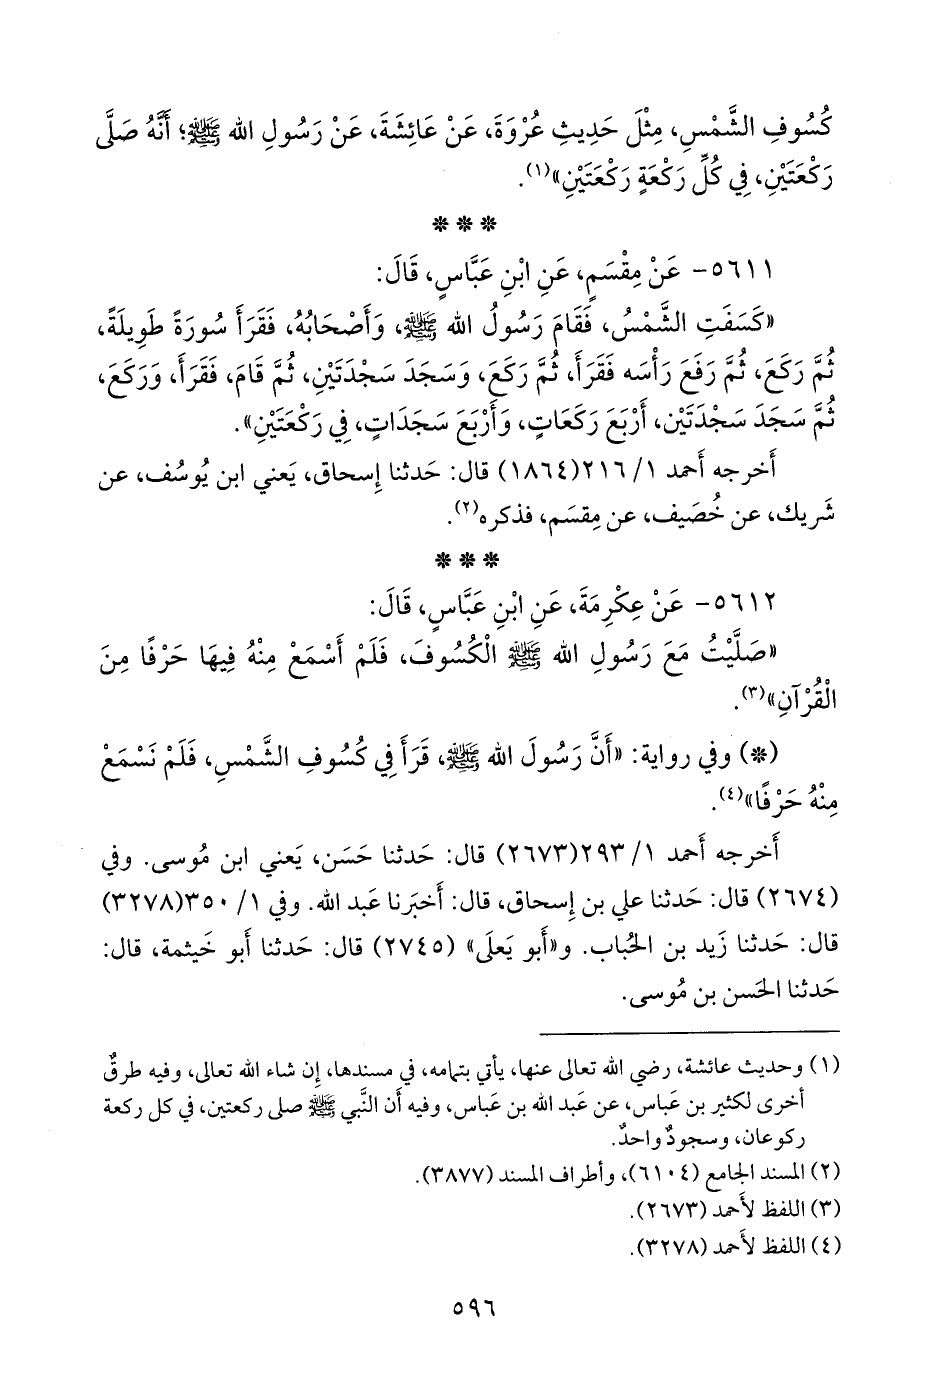 كُسُوفِ الشَّمْسِ، مِثْلَ حَدِيثِ عُرْوَةَ، عَنْ عَائِشَةَ، عَنْ رَسُولِ الله ﷺ؛ أَنَّهُ صَلَّى
رَكْعَتَيْنِ، فِي كُلِّ رَكْعَةٍ رَكْعَتَيْنِ»(١).
* * *
٥٦١١- عَنْ مِقْسَمٍ، عَنِ ابْنِ عَبَّاسٍ، قَالَ:
«كَسَفَتِ الشَّمْسُ، فَقَامَ رَسُولُ الله ﷺ، وَأَصْحَابُهُ، فَقَرَأَ سُورَةً طَوِيلَةً،
ثُمَّ رَكَعَ، ثُمَّ رَفَعَ رَأْسَه فَقَرَأَ، ثُمَّ رَكَعَ، وَسَجَدَ سَجْدَتَيْنِ، ثُمَّ قَامَ، فَقَرَأَ، وَرَكَعَ،
ثُمَّ سَجَدَ سَجْدَتَيْنِ، أَرْبَعَ رَكَعَاتٍ، وَأَرْبَعَ سَجَدَاتٍ، فِي رَكْعَتَيْنِ».
أَخرجه أَحمد ١/ ٢١٦(١٨٦٤) قال: حَدثنا إِسحاق، يَعني ابن يُوسُف، عن
شَريك، عن خُصَيف، عن مِقسَم، فذكره(٢).
* * *
٥٦١٢- عَنْ عِكْرِمَةَ، عَنِ ابْنِ عَبَّاسٍ، قَالَ:
«صَلَّيْتُ مَعَ رَسُولِ الله ﷺ الْكُسُوفَ، فَلَمْ أَسْمَعْ مِنْهُ فِيهَا حَرْفًا مِنَ
الْقُرْآنِ»(٣).
(*) وفي رواية: «أَنَّ رَسُولَ الله ﷺ، قَرَأَ فِي كُسُوفِ الشَّمْسِ، فَلَمْ نَسْمَعْ
مِنْهُ حَرْفًا»(٤).
أَخرجه أَحمد ١/ ٢٩٣(٢٦٧٣) قال: حَدثنا حَسَن، يَعني ابن مُوسى. وفي
(٢٦٧٤) قال: حَدثنا علي بن إِسحاق، قال: أَخبَرنا عَبد الله. وفي ١/ ٣٥٠(٣٢٧٨)
قال: حَدثنا زَيد بن الحُباب. و«أَبو يَعلَى» (٢٧٤٥) قال: حَدثنا أَبو خَيثمة، قال:
حَدثنا الحَسن بن مُوسى.
(١) وحديث عائشة، رضي الله تعالى عنها، يأتي بتمامه، في مسندها، إِن شاء الله تعالى، وفيه طرقٌ
أخرى لكثير بن عَباس، عن عَبد الله بن عَباس، وفيه أَن النَّبي ﷺ صلى ركعتين، في كل ركعة
ركوعان، وسجودٌ واحدٌ.
(٢) المسند الجامع (٦١٠٤)، وأطراف المسند (٣٨٧٧).
(٣) اللفظ لأَحمد (٢٦٧٣).
(٤) اللفظ لأَحمد (٣٢٧٨).
٥٩٦